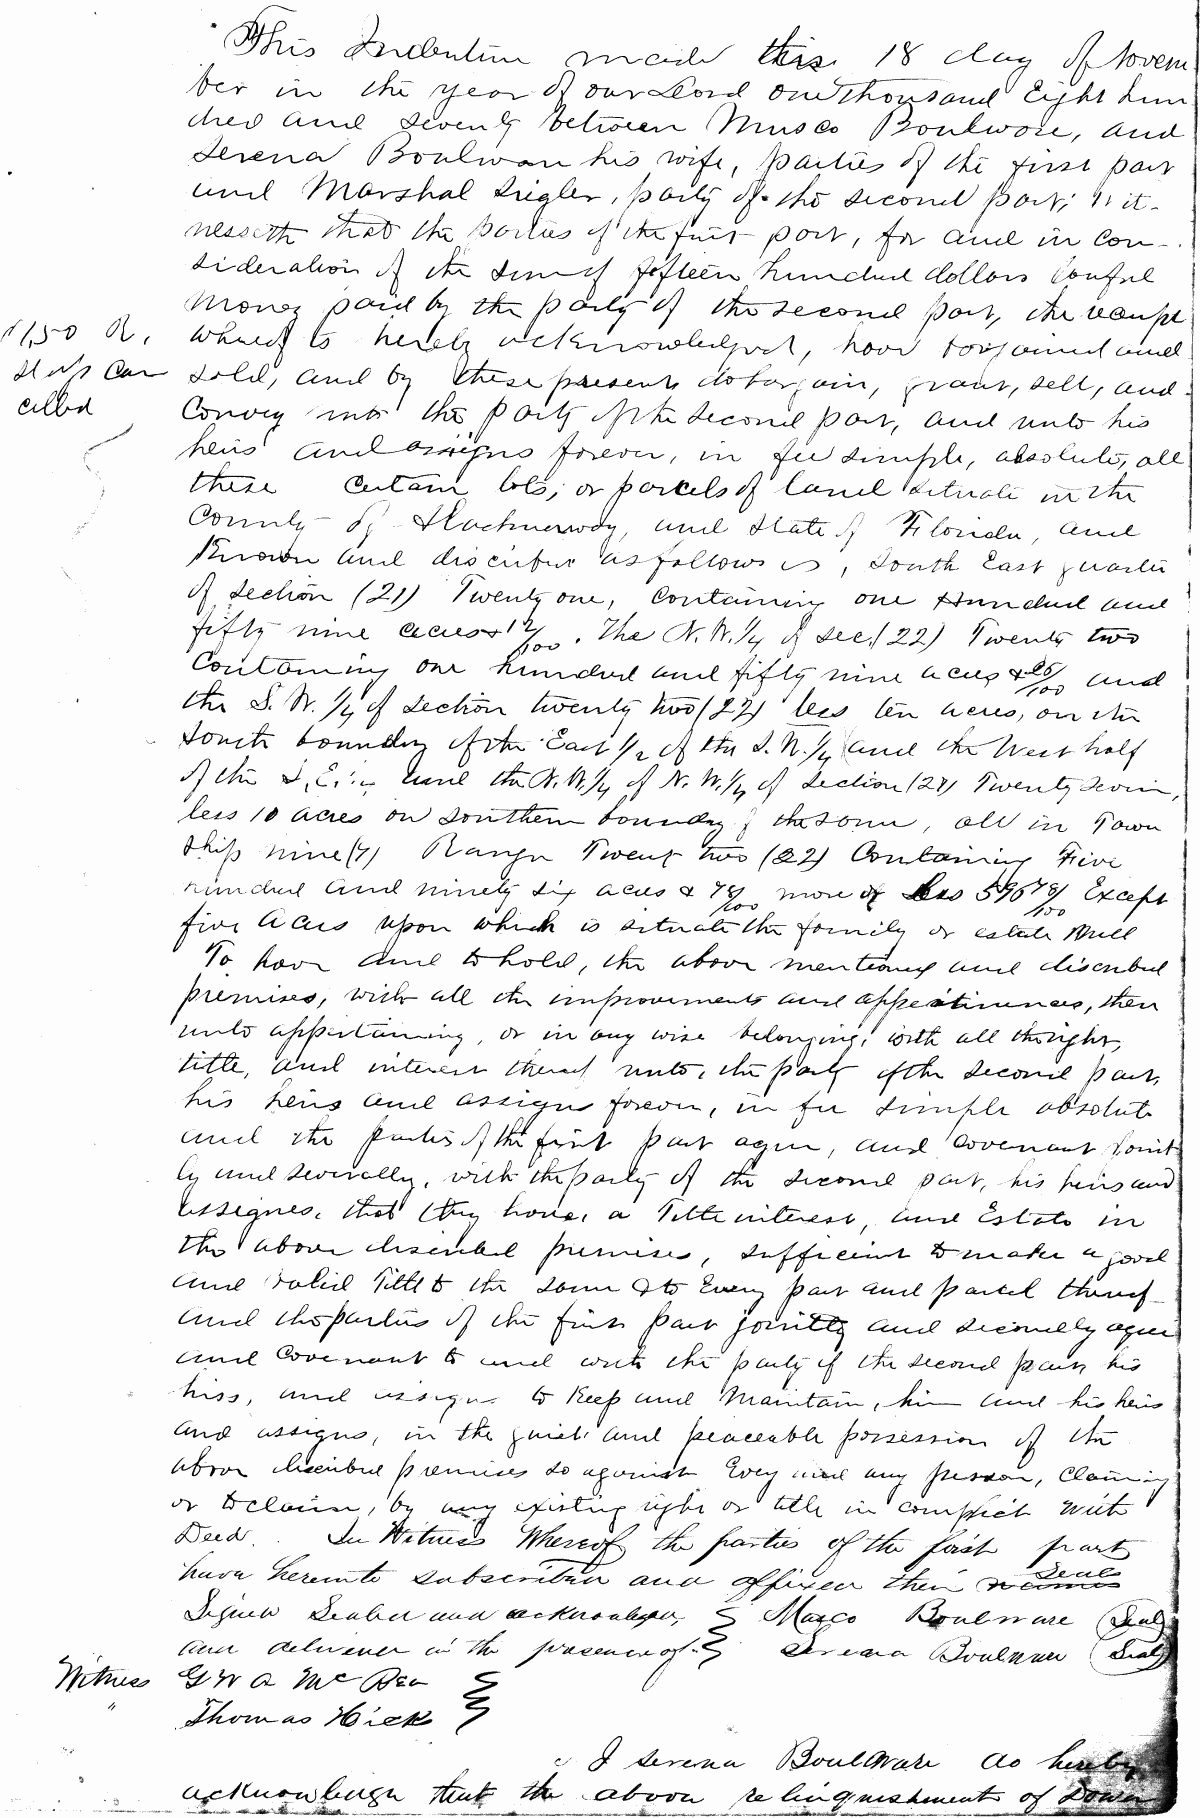 This Indenture made this 18 day of Novem
ber in the year of our Lord one thousand Eight hun
dred and seventy between Musco Boulware, and
Serena Boulware his wife, parties of the first part
and Marshal Sigler, party of the second part; Wit-
nesseth that the parties of the first part, for and in con-
sideration of the sum of fifteen hundred dollars lawful
money paid by the party of the second part, the receipt
$1,50 R. whereof is hereby acknowledged, have bargained and
Stamps Can sold, and by these presents do bargain, grant, sell, and
celled convey unto the party of the second part, and unto his
heirs and assigns forever, in fee simple, absolute, all
these certain lots, or parcels of land situate in the
County of Hachuway, and State of Florida, and
Known and discribe as follows is, South East quarter
of section (21) Twenty one, containing one Hundred and
fifty nine acres & 12/100. The N.W. 1/4 of sec. (22) Twenty two
Containing one hundred and fifty nine acres & 26/100 and
the S.W. 1/4 of section twenty two (22) less ten acres, on the
South boundry of the East 1/2 of the S.W. 1/4 and the West half
of the S.E. 1/4 and the N.W. 1/4 of N.W. 1/4 of section (27) Twenty Seven,
less 10 acres on southern boundry of the same, all in Town
ship nine (9) Range Twenty two (22) Containing Five
hundred and ninety six acres & 78/100 more or less 596 78/100 Except
five acres upon which is situate the family or estate Mill
To have and to hold, the above mentioned and discribed
premises, with all the improvements and appertinances, then
unto appertaining, or in any wise belonging, with all the right,
title, and interest thereof unto, the party of the second part,
his heirs and assigns forever, in fee simple absolute
and the parties of the first part agree, and covenant joint
ly and severally, with the party of the second part, his heirs and
assignes, that they have, a Title interest, and Estate in
the above discribed premises, sufficient to make a good
and valid Title to the same & to Every part and parcel thereof
and the parties of the first part jointly and severally agree
and Covenant to and with the party of the second part, his
hiss, and assigns to Keep and Maintain, him and his heirs
and assigns, in the quiet and peaceable possession of the
above discribed premises so against Every and any person, Claiming
or to claim, by any existing right or title in conflict with
Deed. In Witness Whereof the parties of the first part
have hereunto subscribed and affixed their names Seals
Signed Sealed and acknowledged, Musco Boulware (Seal)
and delivered in the presence of. Serena Boulware (Seal)
Witness G W A McRea
" Thomas Hick
I Serena Boulware do hereby
acknowledge that the above relinquishments of Dower